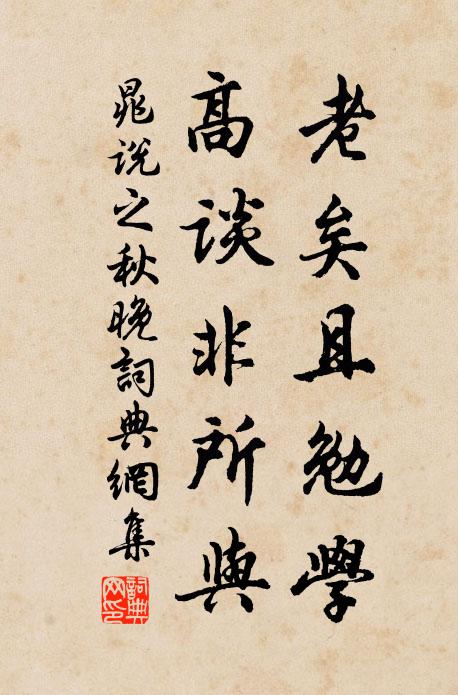 老矣且勉學
高談非所與
晁說之秋晚詞典網集
詞典网印